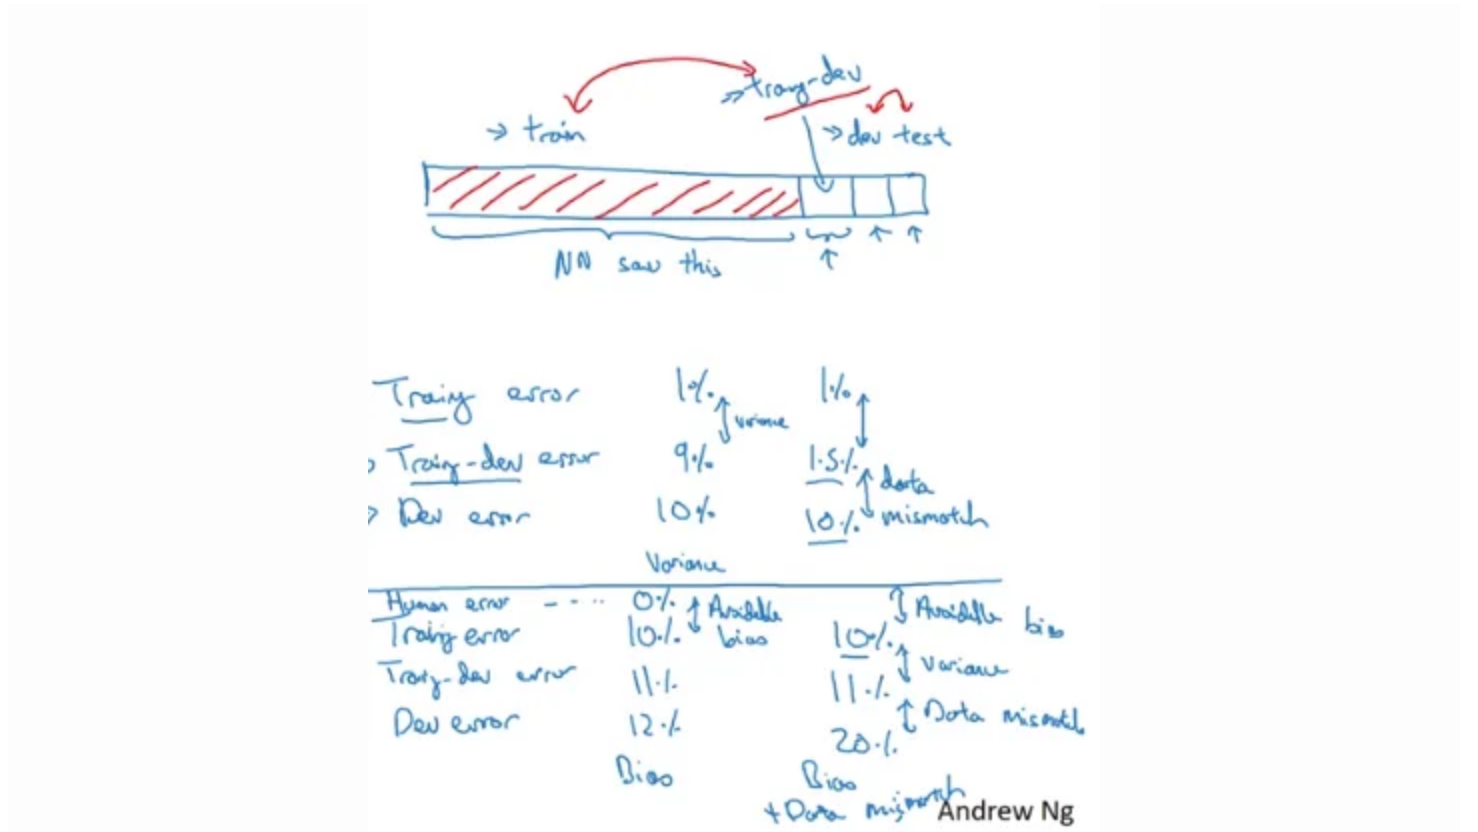 training-dev
→ train
→ dev test
NN saw this
Training error 1% 1%
variance
Training-dev error 9% 1.5%
data
Dev error 10% 10% mismatch
Variance
Human error ---·· 0% Avoidable Avoidable bias
Training error 10% bias 10%
Variance
Training-dev error 11% 11%
Data mismatch
Dev error 12% 20%
Bias Bias
+ Data mismatch
Andrew Ng